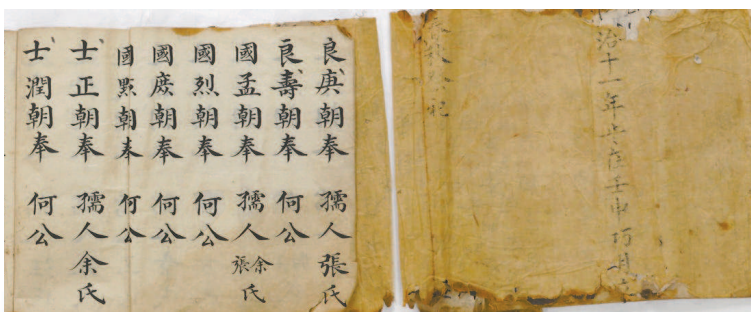 治十一年歲在壬申巧月
良庚朝奉 孺人張氏
良壽朝奉 何公
國孟朝奉 孺人余張氏
國烈朝奉 何公
國庶朝奉 何公
國㷖朝奉 何公
士正朝奉 孺人余氏
士潤朝奉 何公